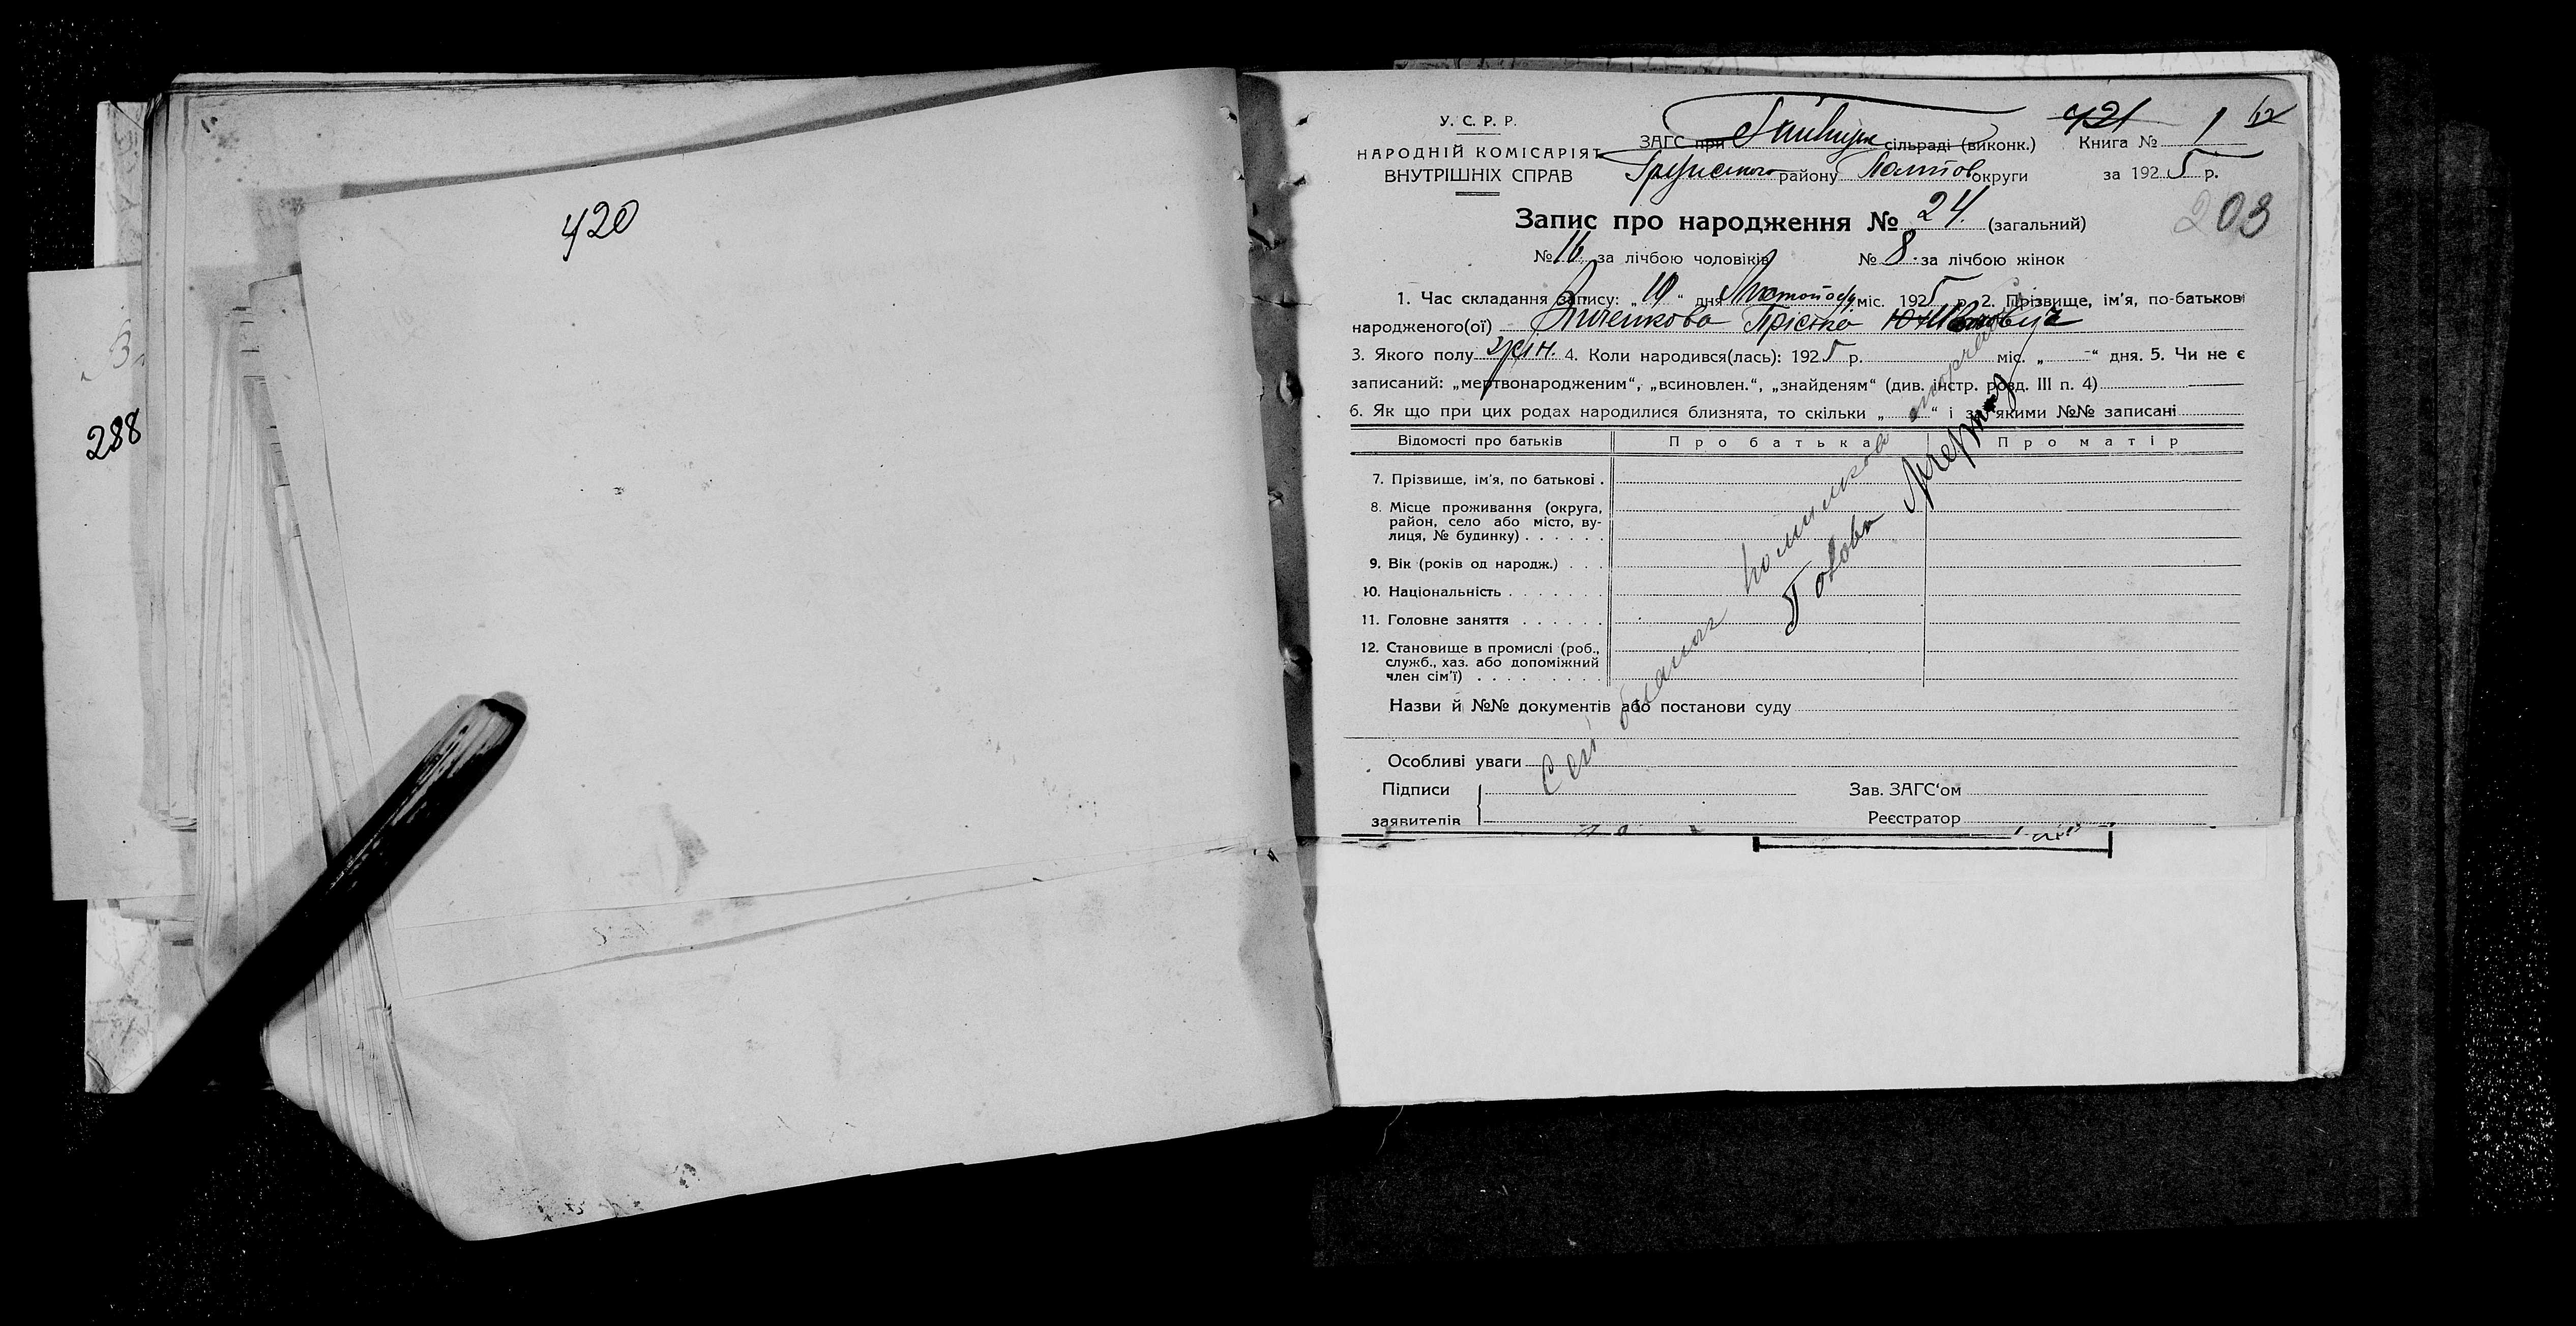 420
288
У. С. Р. Р.
НАРОДНІЙ КОМІСАРІЯТ
ВНУТРІШНІХ СПРАВ
ЗАГС при сільраді (виконк.)
району Полтов округи
421
1
Книга №
за 1925 р.
203
Запис про народження № 24. (загальний)
№ 16 за лічбою чоловіків № 8 за лічбою жінок
1. Час складання запису: „10“ дня Листопаду міс. 1925 р. 2. Прізвище, ім'я, по-батькові
народженого(ої)
3. Якого полу жін. 4. Коли народився(лась): 1925 р. міс. „ -“ дня. 5. Чи не є
записаний: „мертвонародженим“, „всиновлен.“, „знайденям“ (див. інстр. розд. III п. 4)
6. Як що при цих родах народилися близнята, то скільки „ “ і за якими №№ записані
Відомості про батьків Про батька Про матір
7. Прізвище, ім'я, по батькові .
8. Місце проживання (округа,
район, село або місто, ву-
лиця, № будинку) . . . . . .
9. Вік (років од народж.) . . .
10. Національність . . . . . . .
11. Головне заняття . . . . . .
12. Становище в промислі (роб.,
служб., хаз. або допоміжний
член сім'ї) . . . . . . . . .
Назви й №№ документів або постанови суду
Особливі уваги
Підписи
заявителів
Зав. ЗАГС'ом
Реєстратор
Голова